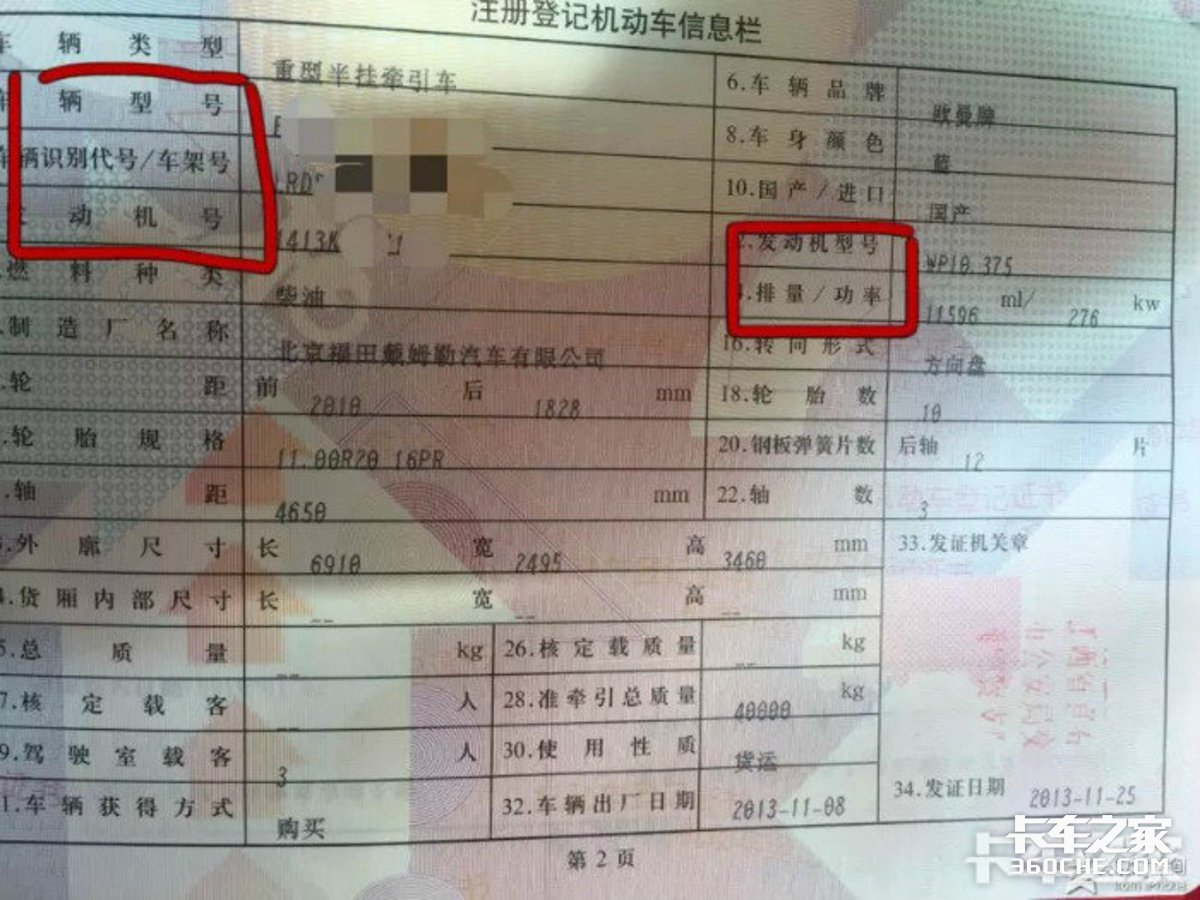 注册登记机动车信息栏
车 辆 类 型 重型半挂牵引车 6.车 辆 品 牌 欧曼牌
车 辆 型 号 8.车 身 颜 色 蓝
车辆识别代号/车架号 LRD 10.国 产 / 进 口 国产
发 动 机 号 1413K 2.发动机型号 WP10.375
燃 料 种 类 柴油 4.排 量 / 功 率 11596 ml/ 276 kw
制 造 厂 名 称 北京福田戴姆勒汽车有限公司 16.转 向 形 式 方向盘
.轮 距 前 2010 后 1828 mm 18.轮 胎 数 10
.轮 胎 规 格 11.00R20 16PR 20.钢板弹簧片数 后轴 12 片
.轴 距 4650 mm 22.轴 数 3
3.外 廓 尺 寸 长 6910 宽 2495 高 3460 mm 33.发证机关章
4.货 厢 内 部 尺 寸 长 -- 宽 -- 高 -- mm
5.总 质 量 -- kg 26.核 定 载 质 量 -- kg
7.核 定 载 客 -- 人 28.准牵引总质量 40000 kg
9.驾 驶 室 载 客 3 人 30.使 用 性 质 货运
1.车 辆 获 得 方 式 购买 32.车辆出厂日期 2013-11-08 34.发证日期 2013-11-25
第 2 页
卡车之家
360CHE.COM